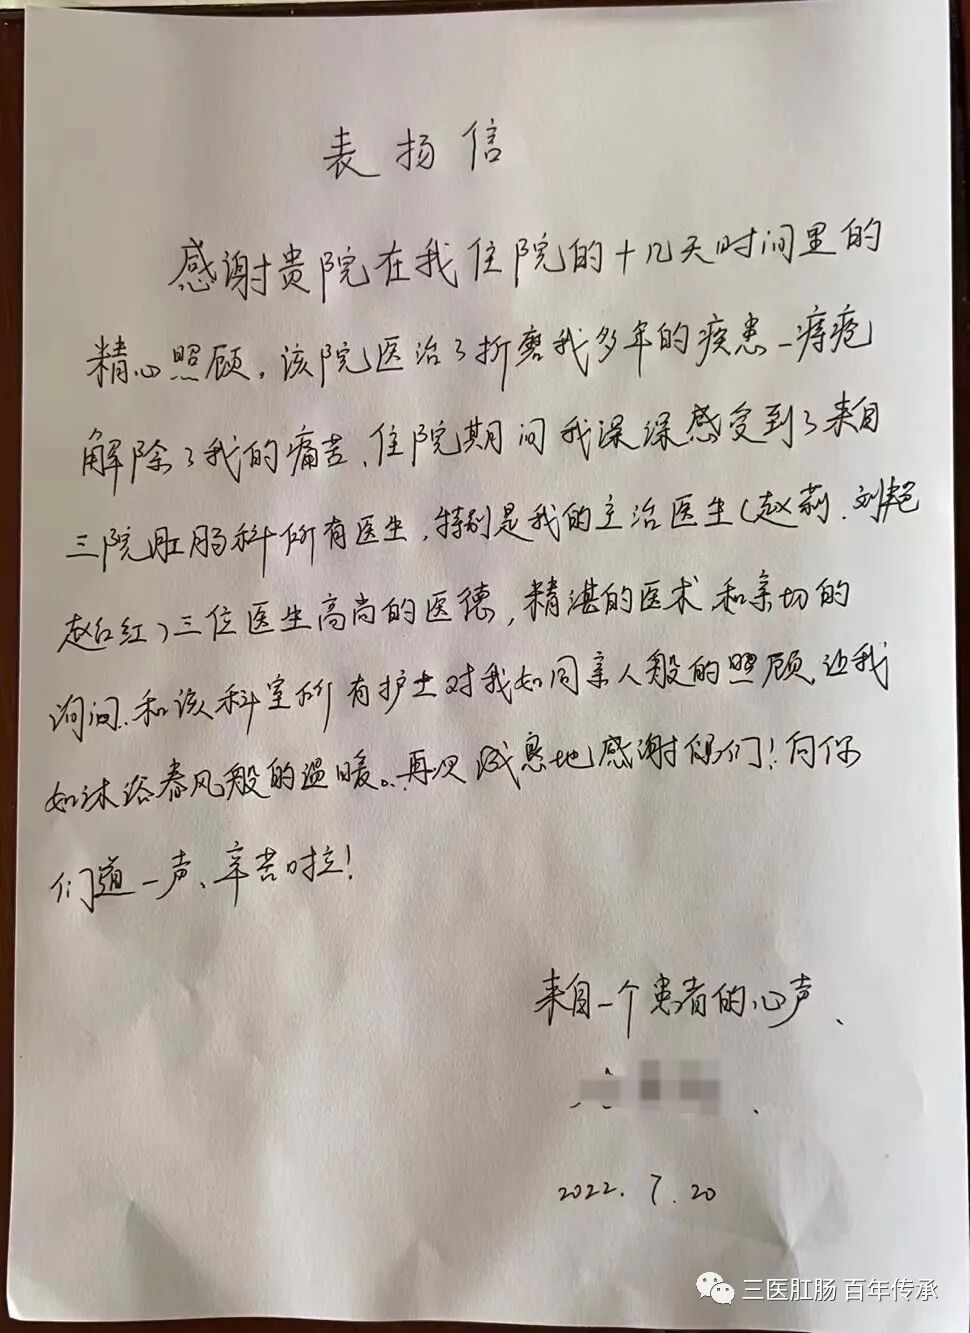 表扬信
感谢贵院在我住院的十几天时间里的
精心照顾，该院医治了折磨我多年的疾患—痔疮
解除了我的痛苦、住院期间我深深感受到了来自
三院肛肠科所有医生，特别是我的主治医生（赵莉、刘艳
赵红红）三位医生高尚的医德，精湛的医术和亲切的
询问、和该科室所有护士对我如同亲人般的照顾、让我
如沐浴春风般的温暖。再次诚恳地感谢你们！向你
们道一声、辛苦啦！
来自一个患者的心声、
2022.7.20
三医肛肠 百年传承